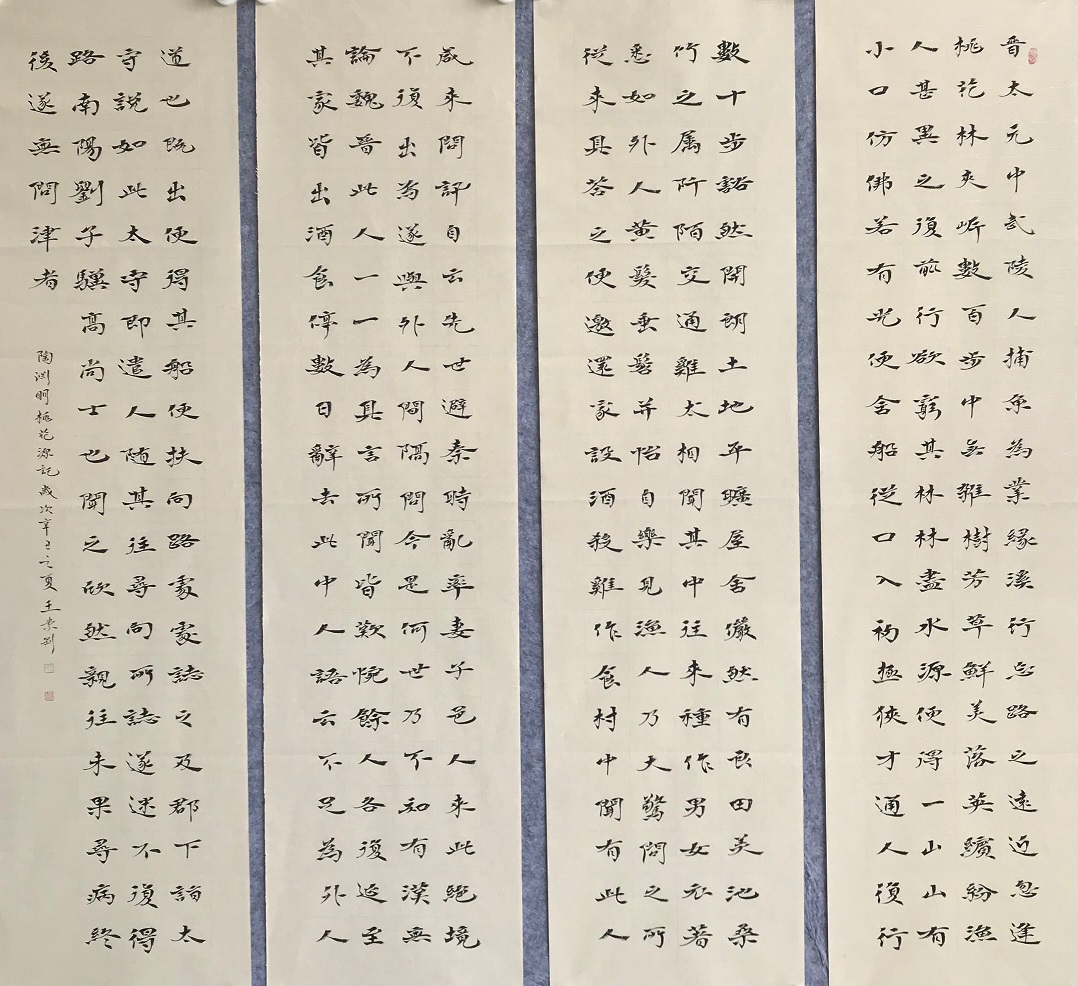 晋太元中武陵人捕魚為業緣溪行忘路之遠近忽逢
桃花林夾岸數百步中無雜樹芳草鮮美落英繽紛漁
人甚異之復前行欲窮其林林盡水源便得一山山有
小口仿佛若有光便舍船從口入初極狹才通人復行
數十步豁然開朗土地平曠屋舍儼然有良田美池桑
竹之属阡陌交通雞犬相聞其中往來種作男女衣著
悉如外人黃髮垂髫并怡自樂見漁人乃大驚問之所
從來具答之便邀還家設酒殺雞作食村中聞有此人
咸來問訊自云先世避秦時亂率妻子邑人來此絕境
不復出焉遂與外人間隔問今是何世乃不知有漢無
論魏晋此人一一為具言所聞皆歎惋餘人各復延至
其家皆出酒食停數日辭去此中人語云不足為外人
道也既出便得其船便扶向路處處誌之及郡下詣太
守說如此太守即遣人随其往尋向所誌遂迷不復得
路南陽劉子驥高尚士也聞之欣然親往未果尋病終
後遂無問津者
陶渊明桃花源記歲次辛丑之夏王